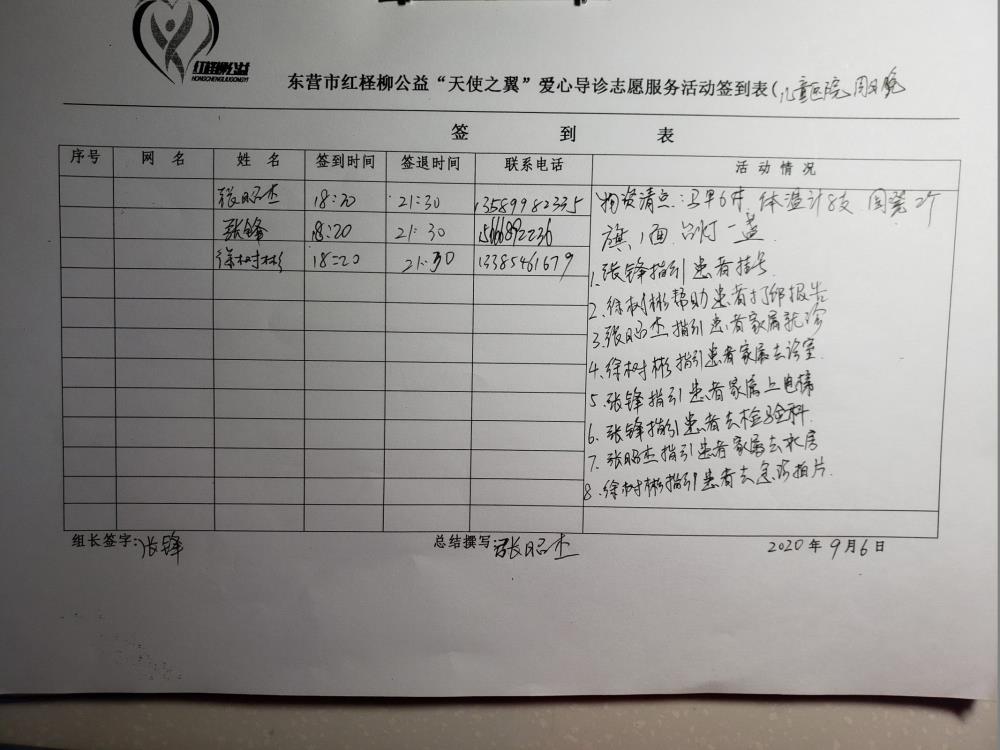 红柽柳公益
HONGCHENGLIUGONGYI
东营市红柽柳公益“天使之翼”爱心导诊志愿服务活动签到表(儿童医院 周日晚
签 到 表
序号 网 名 姓 名 签到时间 签退时间 联系电话 活动情况
张昭杰 18:20 21:30 13589982335 物资清点:马甲6件 体温计8支 圆凳2个
张锋 18:20 21:30 旗1面 台灯一盏
徐树彬 18:20 21:30 13385461679 1.张锋指引患者挂号
2.徐树彬帮助患者打印报告
3.张昭杰指引患者家属就诊
4.徐树彬指引患者家属去诊室
5.张锋指引患者家属上电梯
6.张锋指引患者去检验科
7.张昭杰指引患者家属去水房
8.徐树彬指引患者去急诊拍片
组长签字:张锋 总结撰写:张昭杰 2020年9月6日